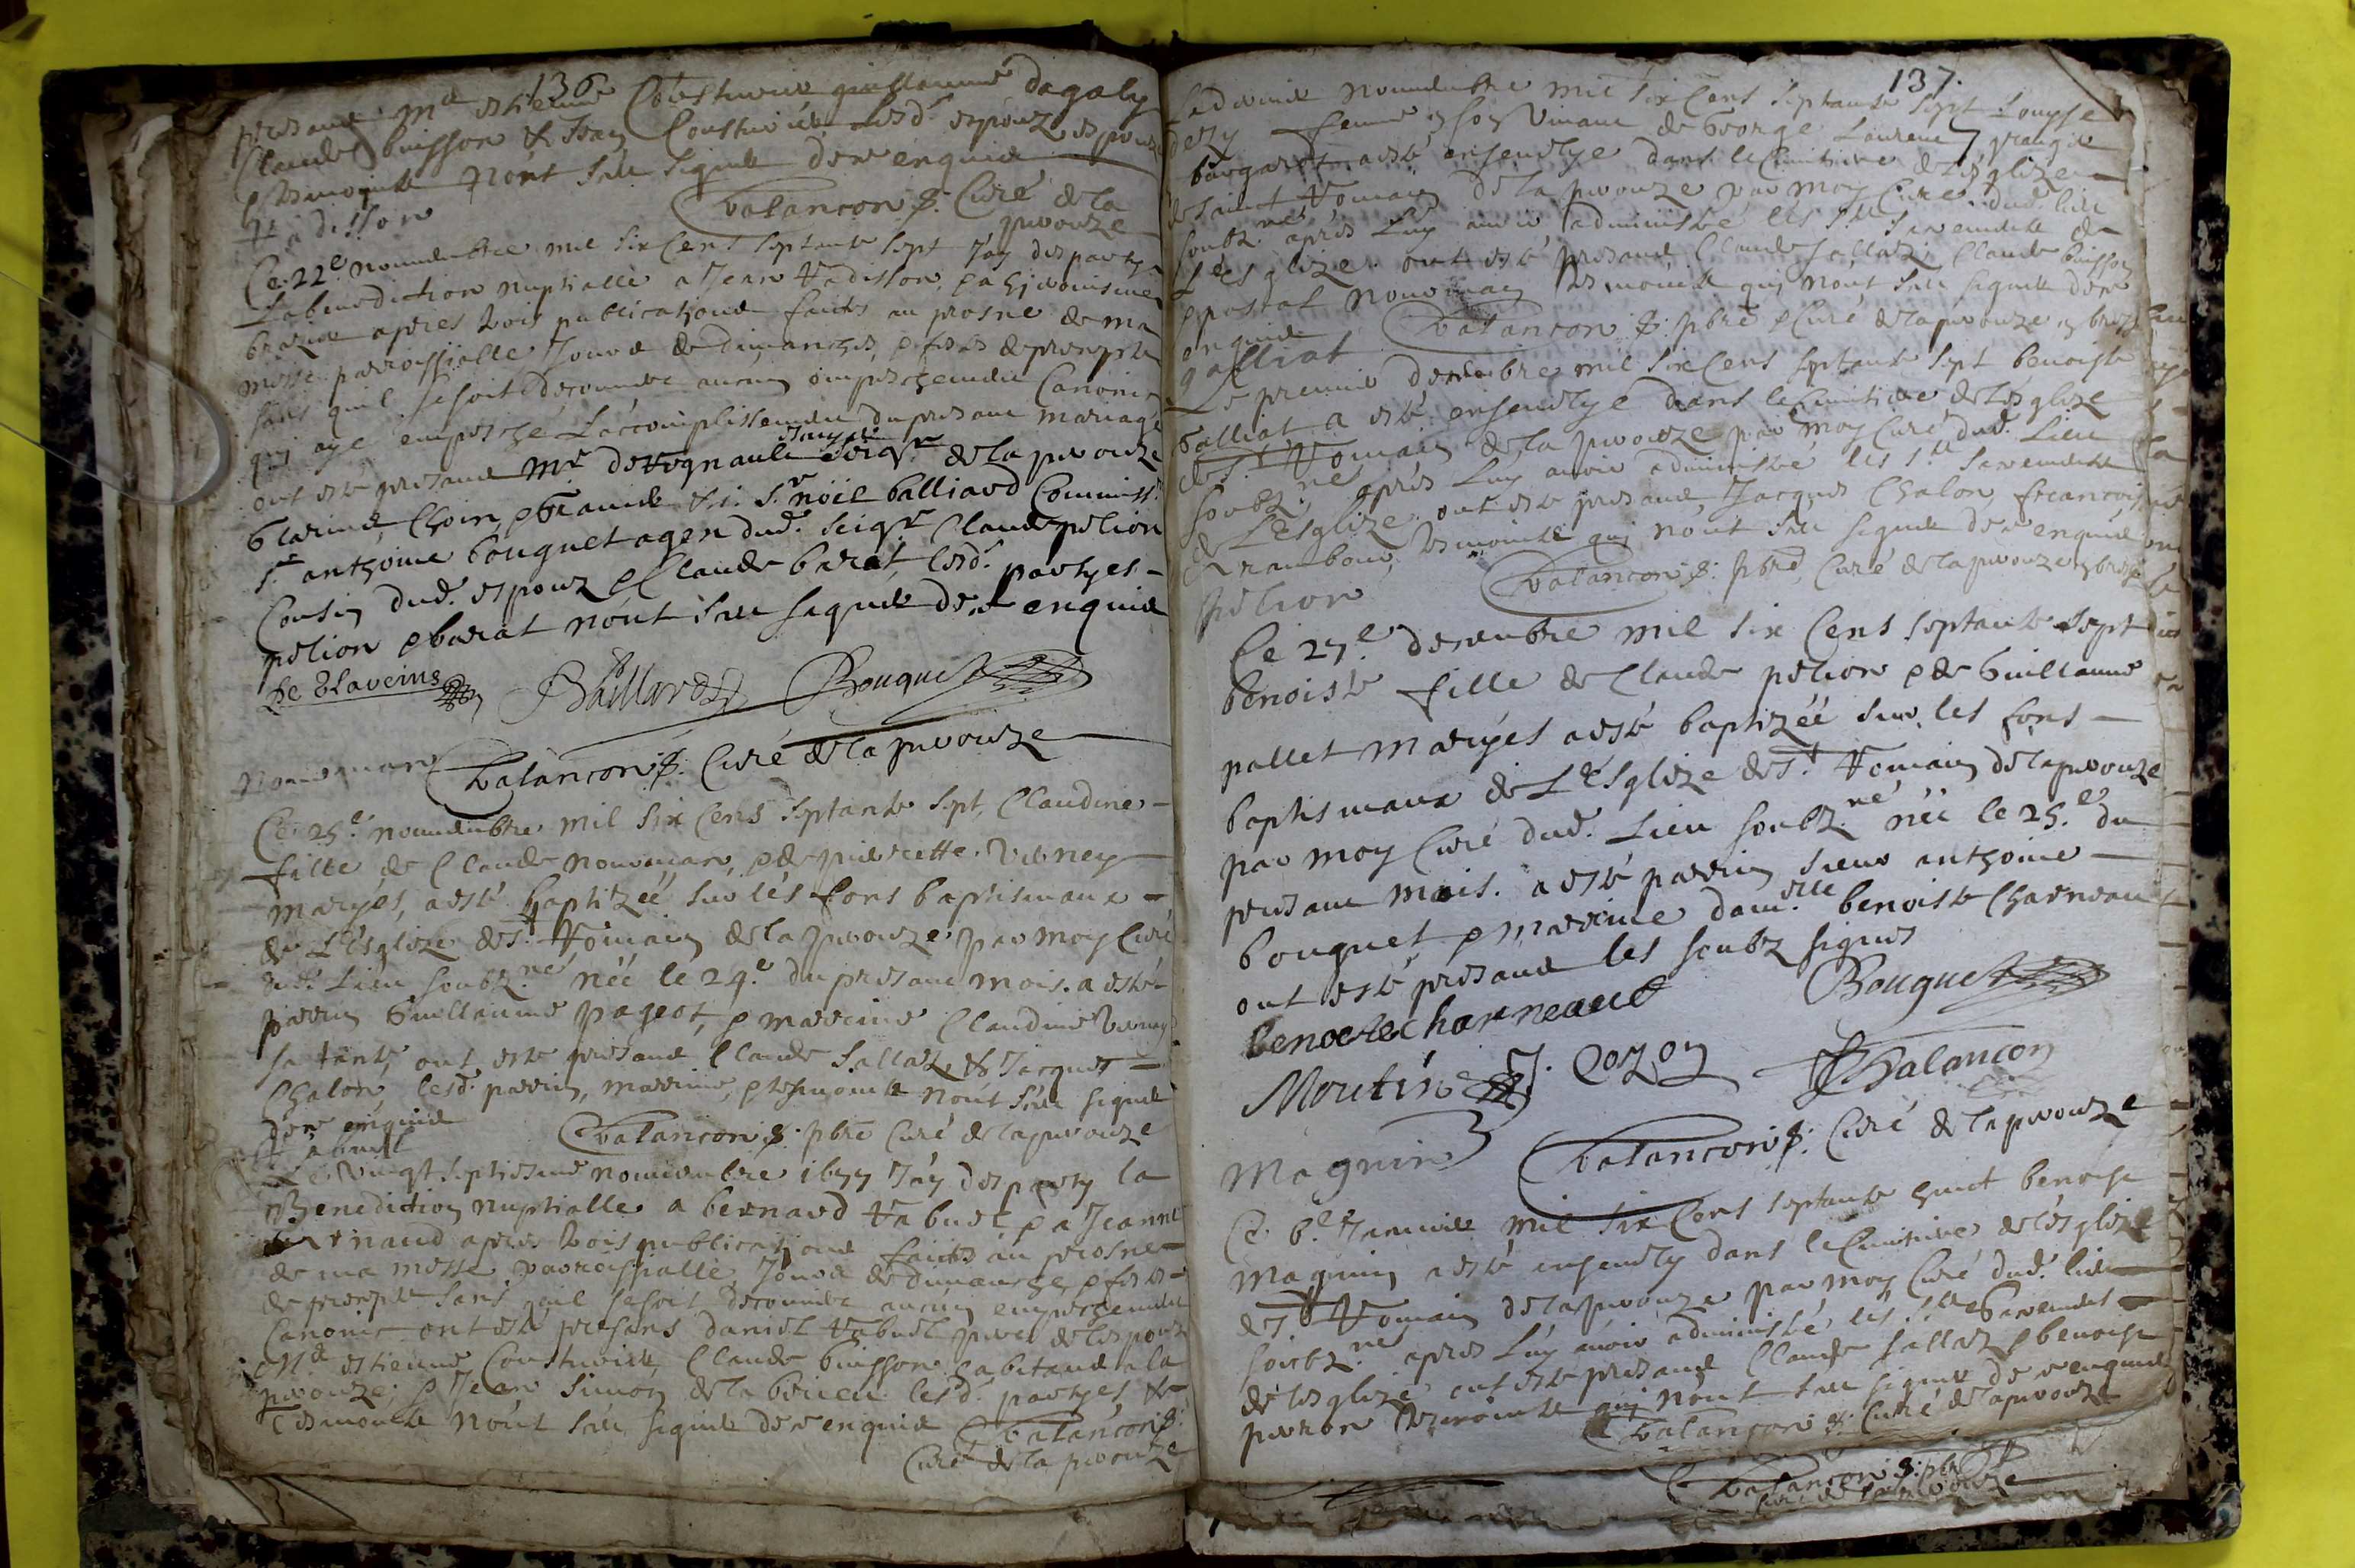 136
presant Md estienne Cousturier guillaume dagaly
Claude buisson & Jean Cousturier lesd. espouz espouze
& tesmointz n'ont sceu signer de ce enquis
Vadisson
Chalancon S. Curé de la
pivouze
Ce 22e nouembre mil six Cens septante sept J'ay desparty
La benediction nuptialle a Jean Vadisson, &
apres trois publications faites au prosne de ma
messe parroissialle Jours de dimanches, & festes de precepte
sans quil se soit decouuert aucun empeschement Canonic
qui aye empesché L'accomplissement du presant mariage
ont esté presant Mr. seigr. de la pivouze
Sr. noëlballiard Commissre
Sr. anthoine bouquet agen dud. seigr. Claude pelion
Cousin dud. espouz & Claude barat lesd. partyes
pelion & barat n'ont sceu signer de ce enquis
De Glaveins Balliard Bouquet
nouueman
Chalancon S. Curé de la pivouze
Ce 25e nouembre mil six Cens septante sept, Claudine
fille de Claude nouueman, & de pierrette
mariés, a esté baptizéé sur lés fons baptismaux
de L'ésglize de St. Romain de la pivouze par moy Curé
dud. Lieu soubz.né néé le 24e. du presant mois. a esté
parrin Guillaume pageot, & marrine Claudine
sa tante, ont esté presant Claude sallaz, & Jacques
Chalon, lesd. parrin, marrine, & tesmointz n'ont séu signer
de ce enquis
Chalancon S. pbre Curé de la pivouze
Vabuel
Le Vingt septiesme nouembre 1677 J'ay desparty la
Benediction nuptialle a bernard Vabuel & a Jeanne
apres trois publications faites au prosne
de ma messe parroissialle, Jours de dimanche, & festes
de precepte sans quil se soit decouuert aucun empeschement
Canonic ont esté presans daniel Vabuel pere de lespouz
Md estienne Cousturier, Claude buisson habitans a la
pivouze, & Jean simon lesd. partyes, &
Tesmointz n'ont sceu signer de ce enquis Chalancon S.
Curé de la pivouze
137.
nouembre mil six Cens septante sept
femme en son Viuant de George Laurent
a esté enseuelye dans le Cimitiere de L'ésglize
de saint Romain de la pivouze par moy Curé dud. lieu
soubz.né aprés Luy auoir administré les Sts. Sacremens de
L'ésglize. ont esté presant Claude sallaz, Claude buisson
nouueman tesmointz qui n'ont sceu signer de ce
enquis Chalancon S. pbre & Curé de la pivouze
galliat
Le premier decembre mil six Cens septante sept benoiste
galliat a esté enseuelye dans le Cimitiere de L'ésglize
de St. Romain de la pivouze par moy Curé dud. Lieu
soubz.né aprés Luy auoir administré les Sts. Sacremens
de L'ésglize. ont esté presant Jacques Chalon, francois
rambour, tesmointz qui n'ont sceu signer de ce enquis
Chalancon S. pbre, Curé de la pivouze
pelion
Ce 27e decembre mil six Cens septante sept
benoiste fille de Claude pelion & de Guillaume
pallet mariyés a esté baptizéé sur les fons
baptismaux de L'ésglize de St. Romain de la pivouze
par moy Curé dud. Lieu soubz.né néé le 25e. du
presant mois. a esté parrin sieur anthoine
bouquet, & marrine dam.elle benoiste Charneau
ont esté presant les soubz signes
benoiste charneaul Bouquet
Moutin J. Cozon Chalancon
Magnin
Chalancon S. Curé de la pivouze
Ce 6e. Januier mil six Cens septante huict benoist
magnin a esté enseuely dans le Cimitiere de lésglize
de St. Romain de la pivouze par moy Curé dud. lieu
soubz.né apres Luy auoir administré les Sts. Sacremens
de lésglize ont esté presant Claude sallaz & benoist
perron tesmointz qui n'ont sceu signer de ce enquis
Chalancon S. Curé de la pivouze
Chalancon S. pbre
Curé de la pivouze